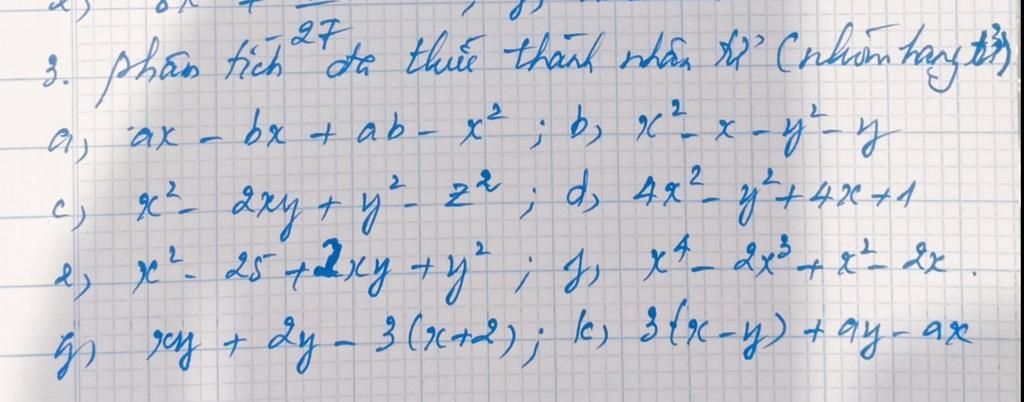 27
3. phân tích đa thức thành nhân tử (nhóm hạng tử)
a, ax - bx + ab - x² ; b, x² - x - y² - y
c, x² - 2xy + y² - z² ; d, 4x² - y² + 4x + 1
e, x² - 25 + 2xy + y² ; f, x⁴ - 2x³ + x² - 2x .
g, xy + 2y - 3(x+2) ; k, 3(x - y) + ay - ax